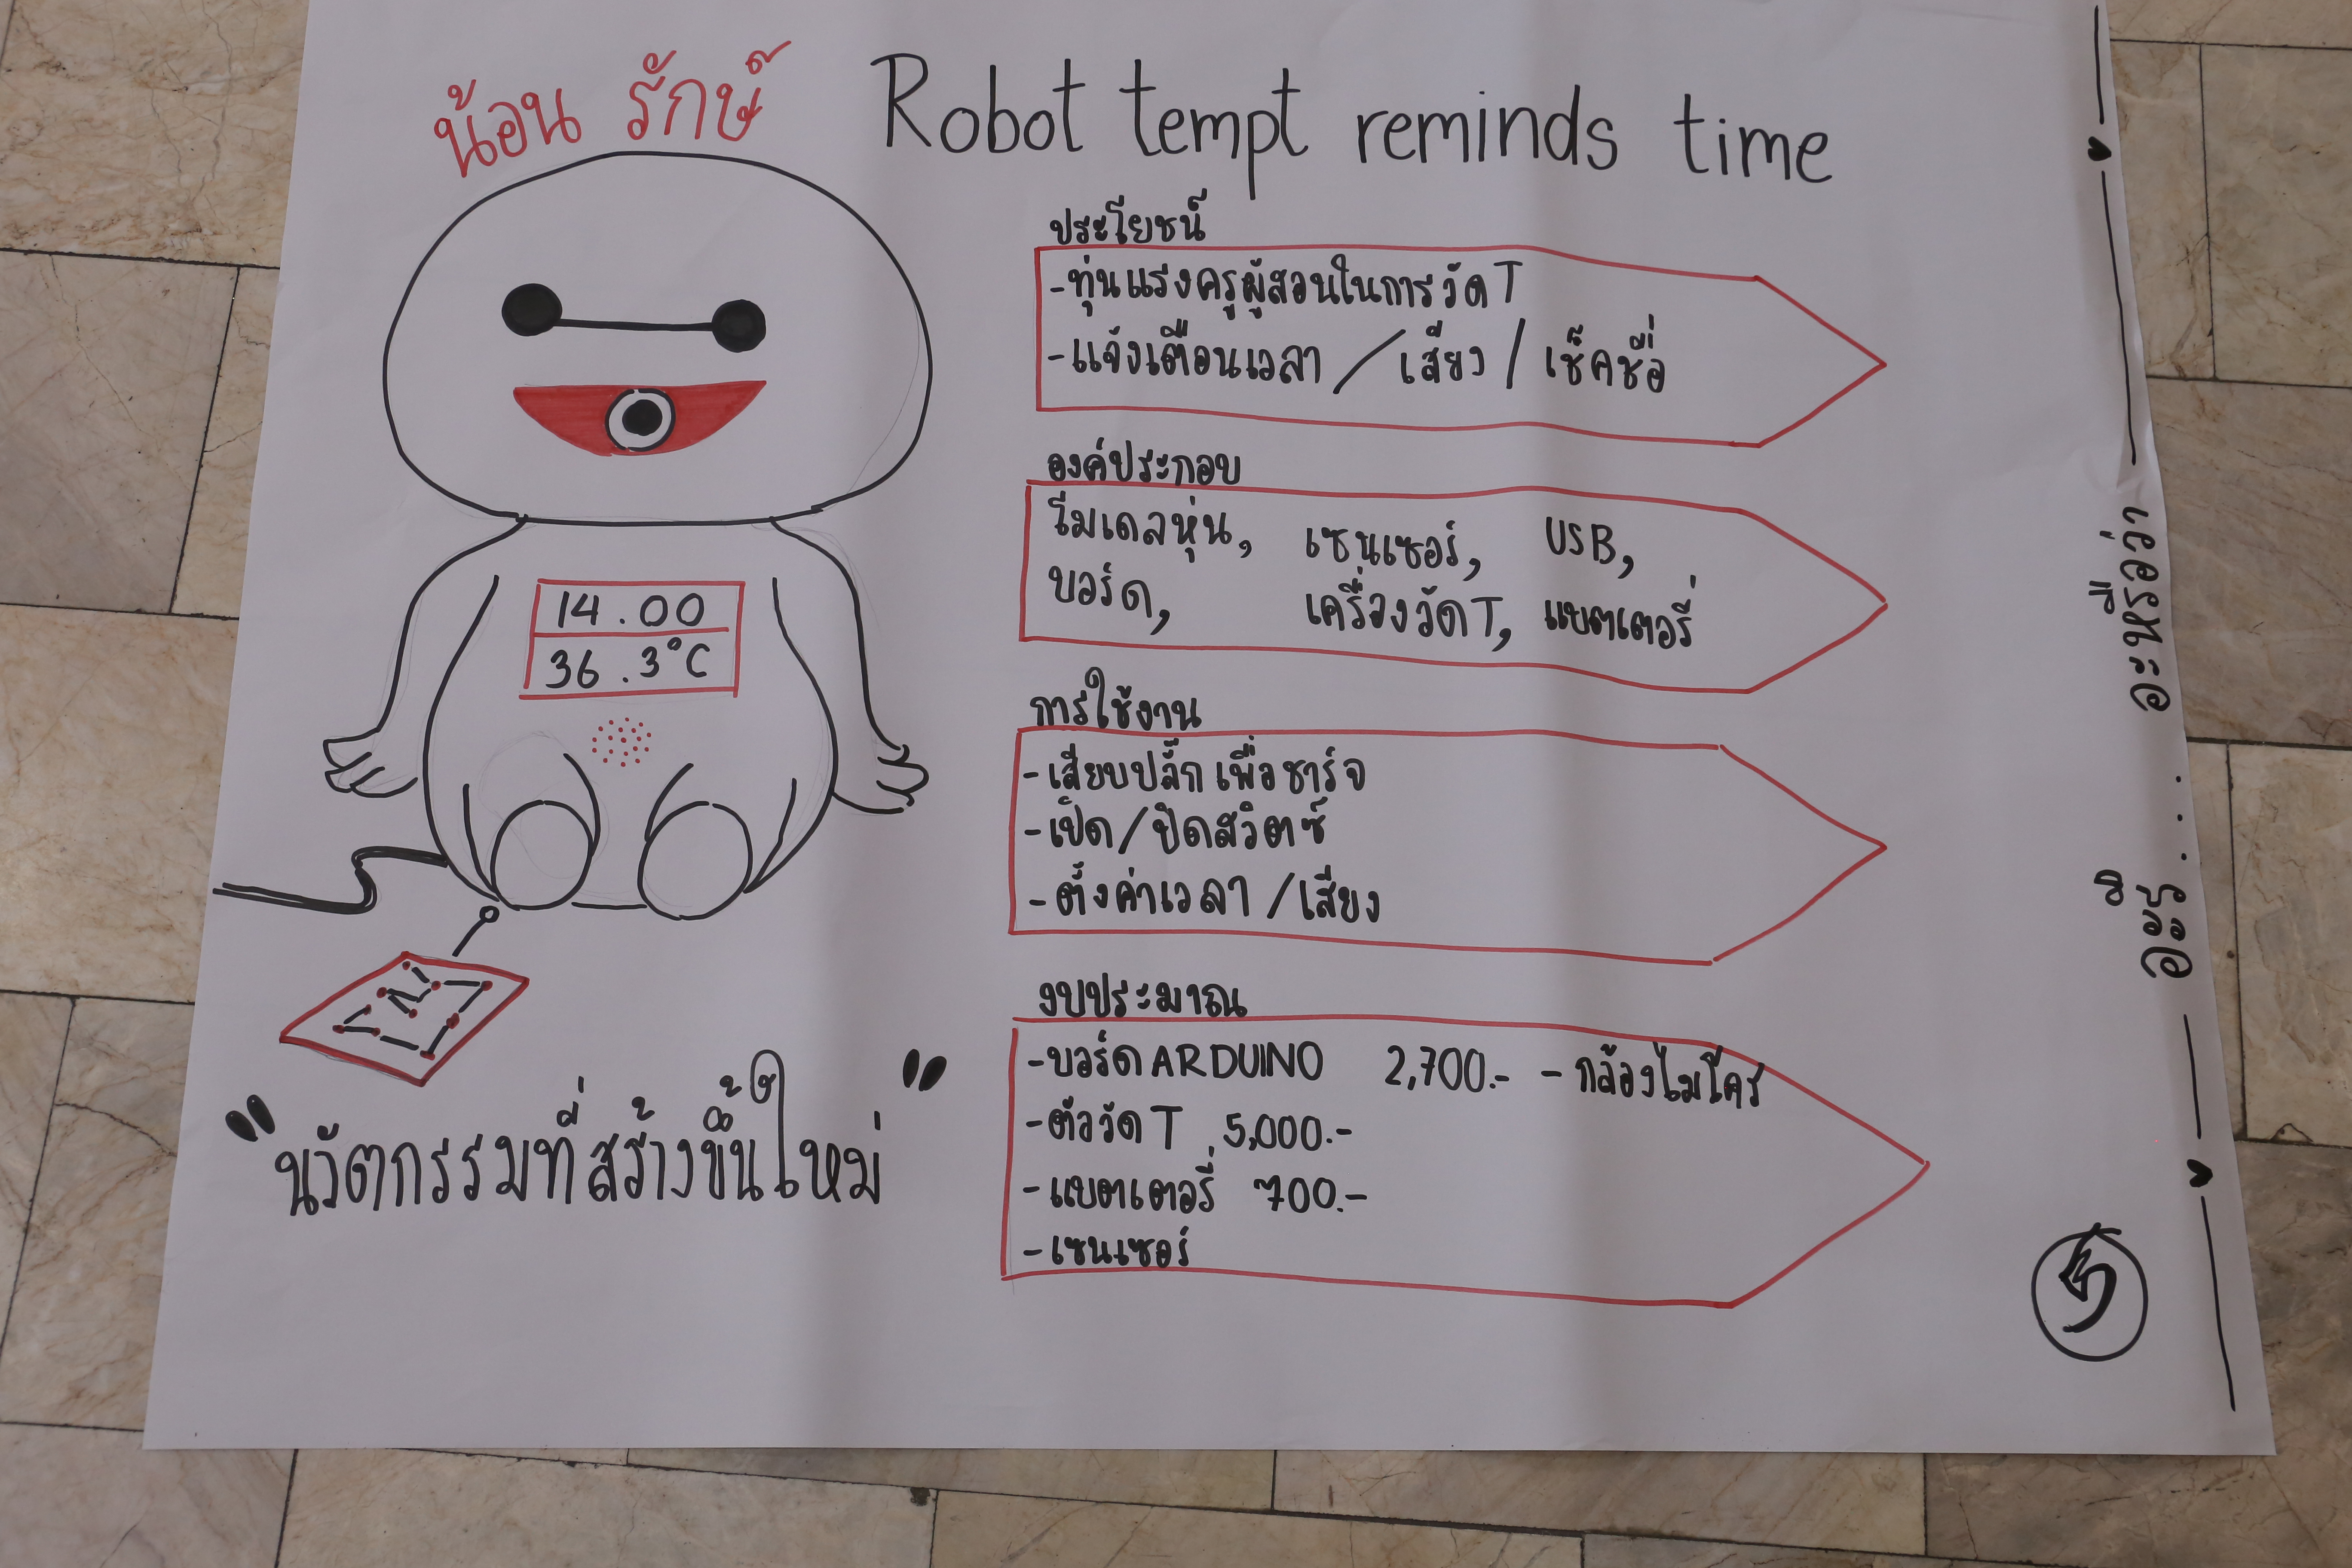 น้อน รักษ์
Robot tempt reminds time
ประโยชน์
-ทุ่นแรงครูผู้สอนในการวัด T
-แจ้งเตือนเวลา / เสียง / เช็คชื่อ
องค์ประกอบ
โมเดลหุ่น, เซนเซอร์, USB,
บอร์ด, เครื่องวัด T, แบตเตอรี่
14.00
36.3°C
การใช้งาน
-เสียบปลั๊กเพื่อชาร์จ
-เปิด/ปิดสวิตซ์
-ตั้งค่าเวลา/เสียง
งบประมาณ
-บอร์ด ARDUINO 2,700.- -กล้องไมโคร
-ตัววัด T 5,000.-
-แบตเตอรี่ 700.-
-เซนเซอร์
"นวัตกรรมที่สร้างขึ้นใหม่"